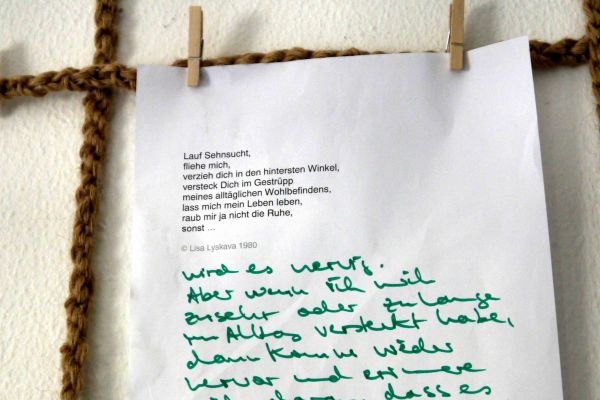 Lauf Sehnsucht,
fliehe mich,
verzieh dich in den hintersten Winkel,
versteck Dich im Gestrüpp
meines alltäglichen Wohlbefindens,
lass mich mein Leben leben,
raub mir ja nicht die Ruhe,
sonst ...
© Lisa Lyskava 1980
wird es nervig.
Aber wenn ich mich
zusehr oder zu lange
im Alltag versteckt habe,
dann komm wieder
hervor und erinnere
mich daran, dass es